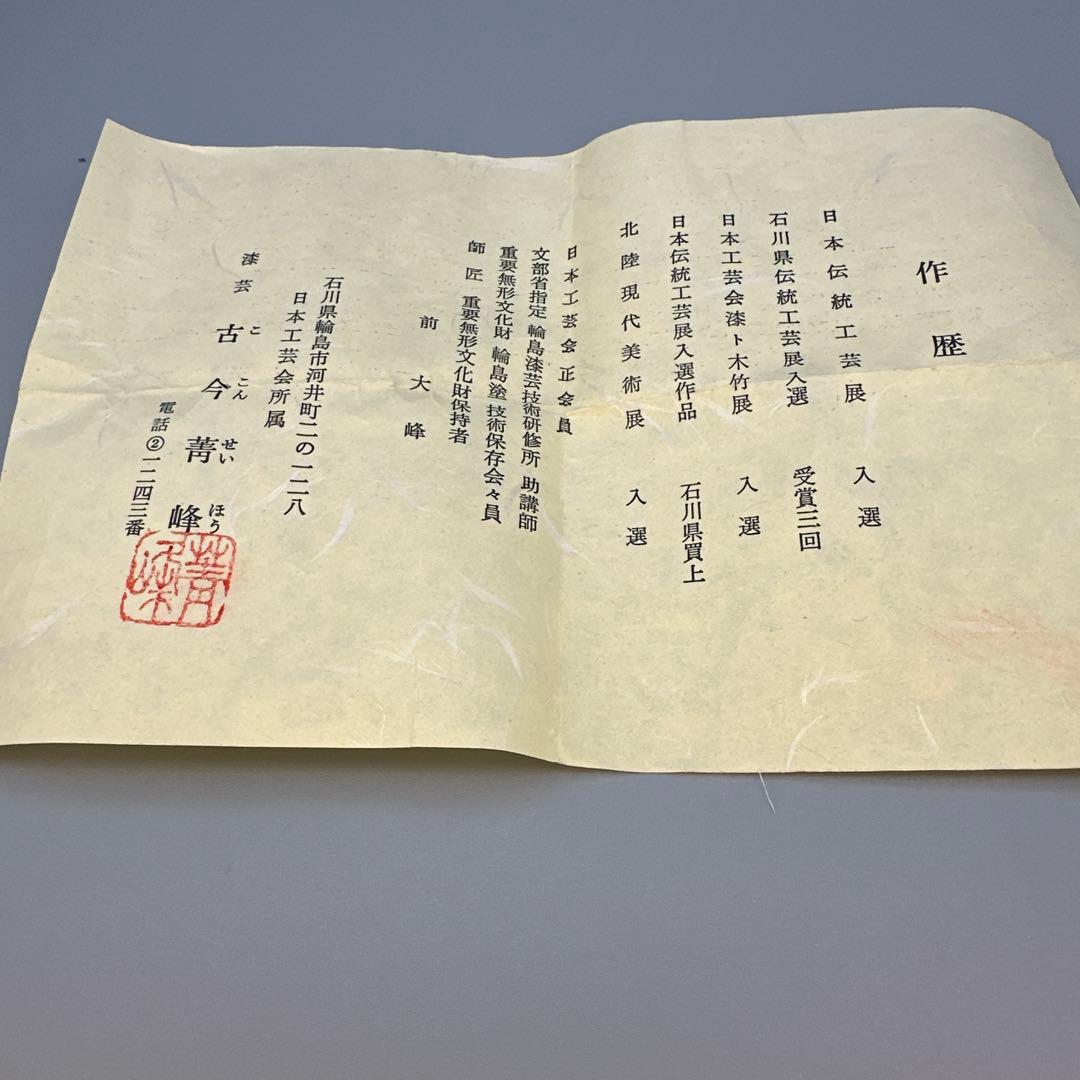 作歴
日本伝統工芸展 入選
石川県伝統工芸展入選 受賞三回
日本工芸会漆ト木竹展 入選
日本伝統工芸展入選作品 石川県買上
北陸現代美術展 入選
日本工芸会正会員
文部省指定 輪島漆芸技術研修所 助講師
重要無形文化財 輪島塗 技術保存会々員
師匠 重要無形文化財保持者
前大峰
石川県輪島市河井町二の一二八
日本工芸会所属
漆芸 古今菁峰
ここんせいほう
電話②一二四三番
菁漆